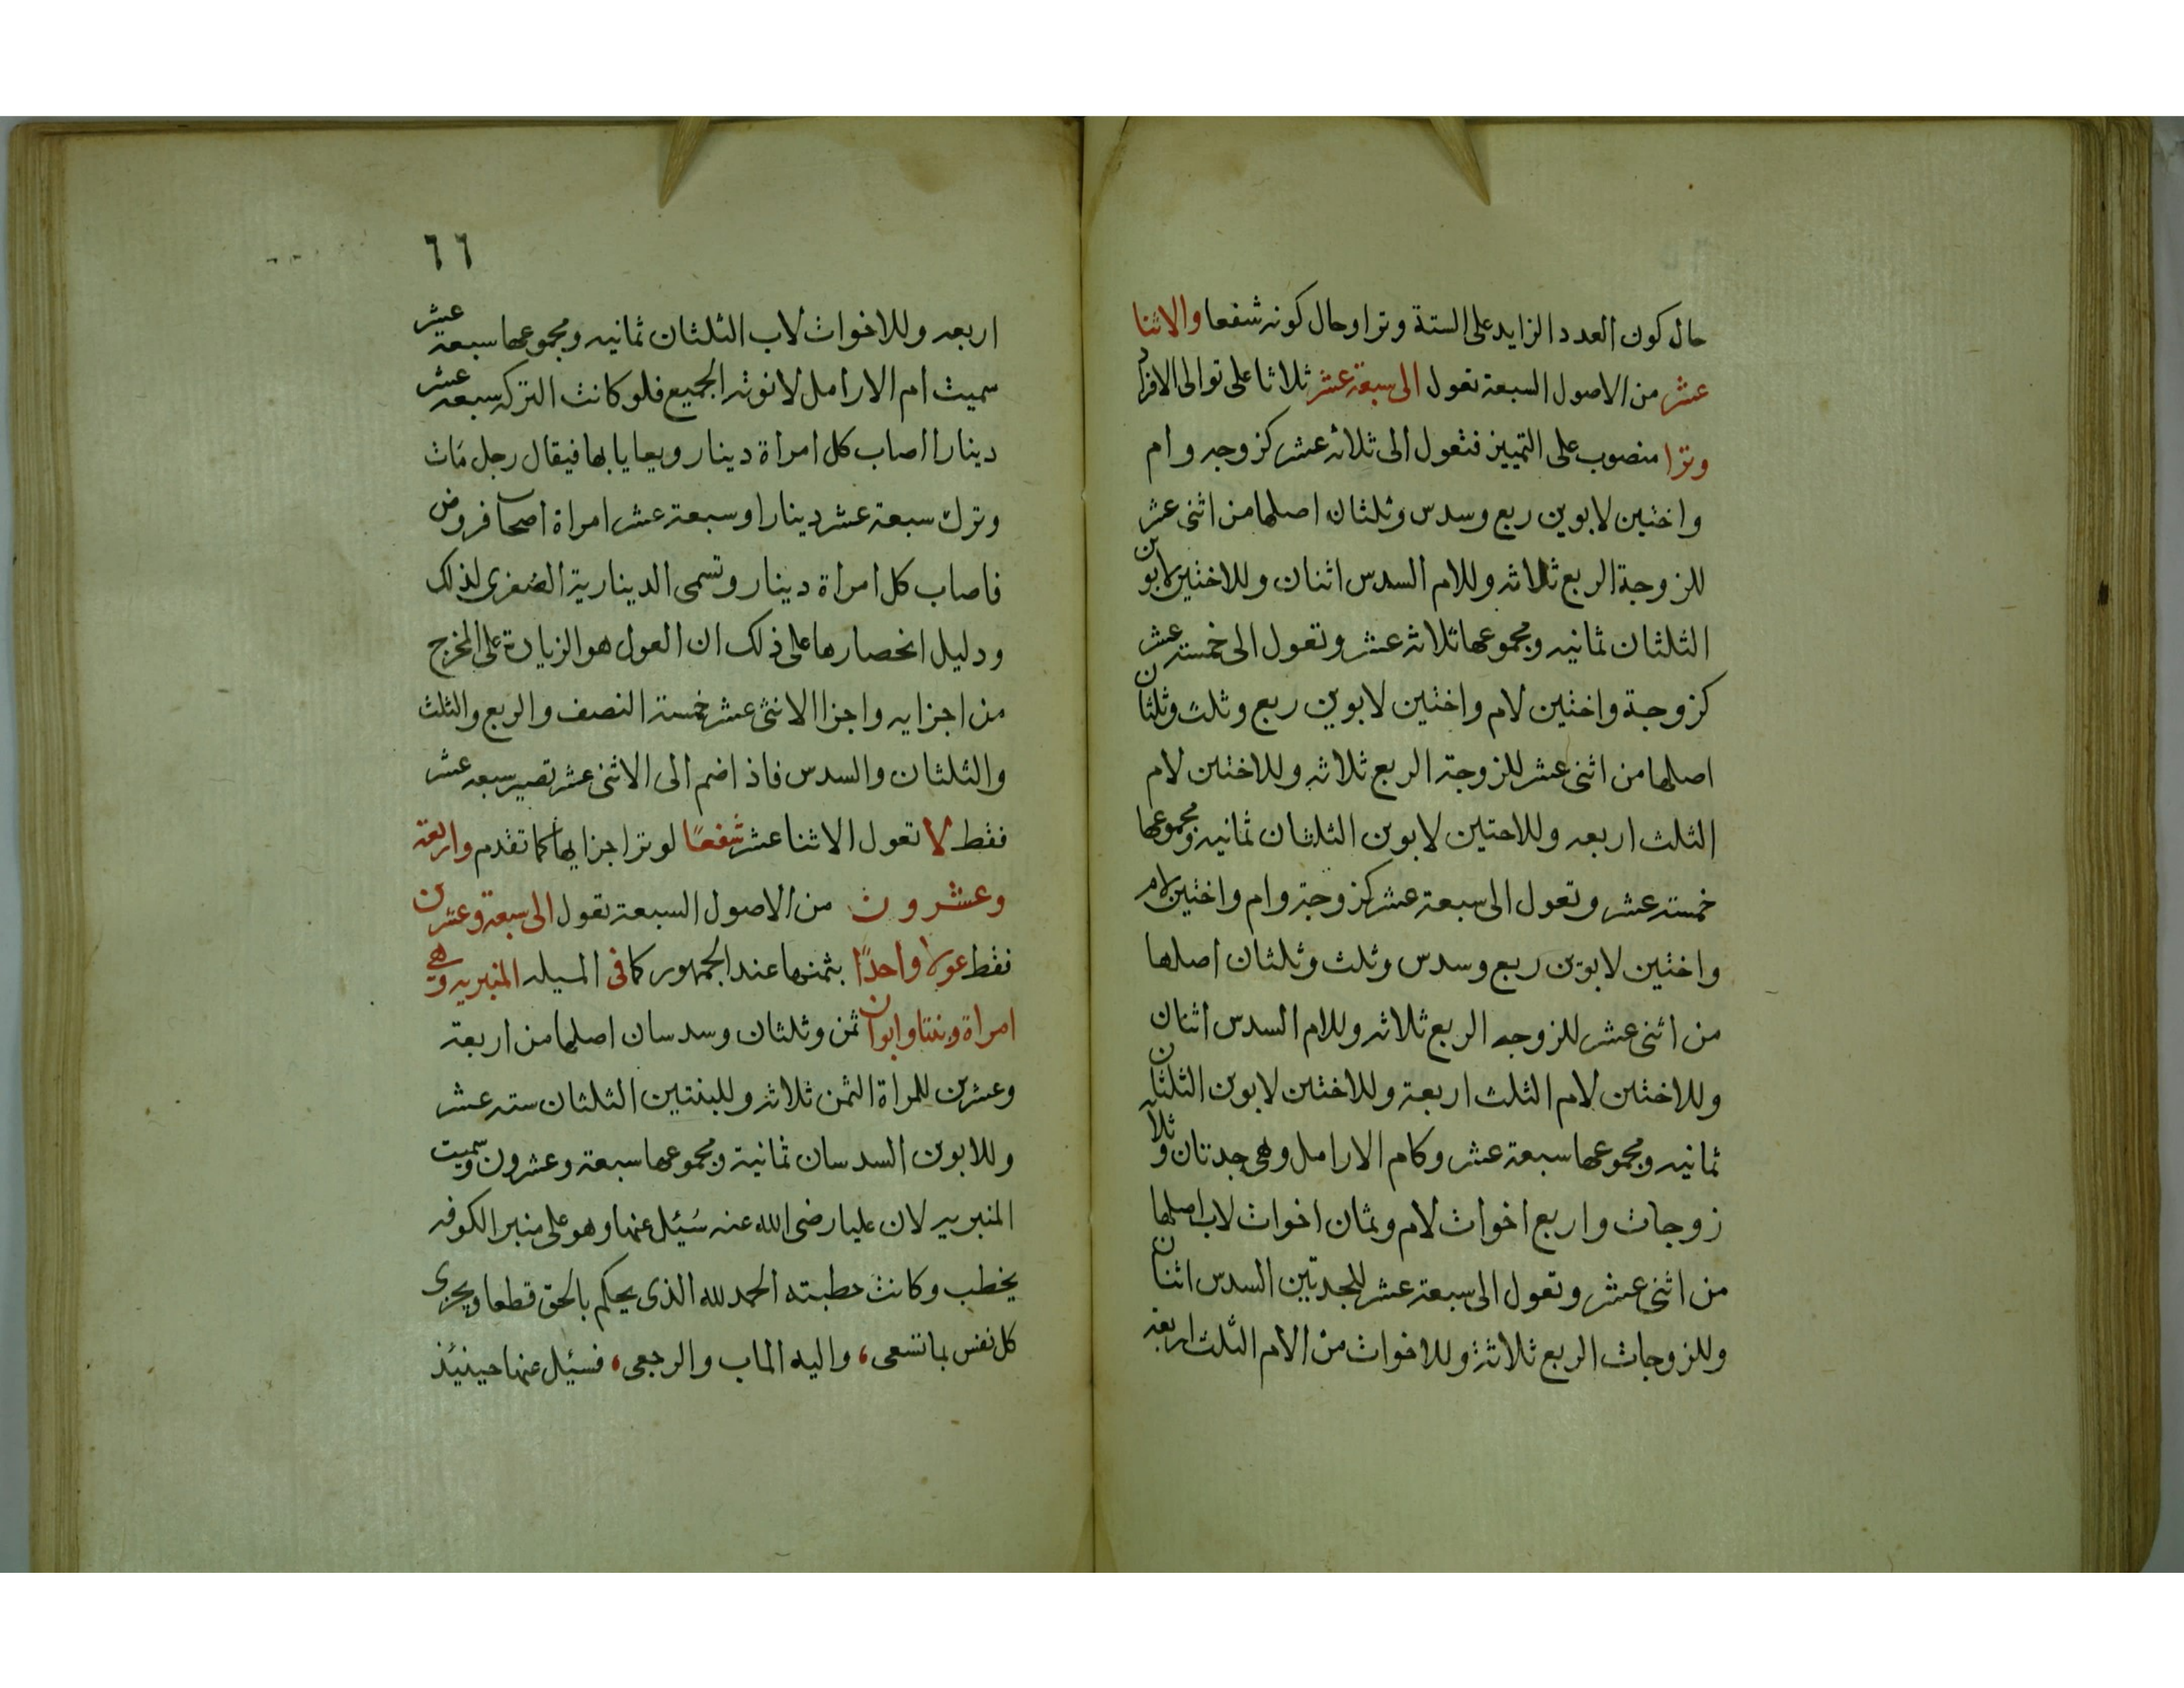 حال كون العدد الزايد على الستة وترا وحال كونه شفعا والاثنا
عشر من الاصول السبعة تعول الى سبعة عشر ثلاثا على توالى الافراد
وترا منصوب على التمييز فتعول الى ثلاثه عشر كزوجه وام
واختين لابوين ربع وسدس وثلثان اصلها من اثنى عشر
للزوجة الربع ثلاثه وللام السدس اثنان وللاختين لابوين
الثلثان ثمانيه ومجموعها ثلاثه عشر وتعول الى خمسته عشر
كزوجة واختين لام واختين لابوين ربع وثلث وثلثان
اصلها من اثنى عشر للزوجة الربع ثلاثه وللاختين لام
الثلث اربعه وللاحتين لابوين الثلثان ثمانيه ومجموعها
خمسته عشر وتعول الى سبعة عشر كزوجة وام واختين لام
واختين لابوين ربع وسدس وثلث وثلثان اصلها
من اثنى عشر للزوجه الربع ثلاثه وللام السدس اثنان
وللاختين لام الثلث اربعة وللاختين لابوين الثلثان
ثمانيه ومجموعها سبعة عشر وكام الارامل وهى جدتان وثلاث
زوجات واربع اخوات لام وثمان اخوات لاب اصلها
من اثنى عشر وتعول الى سبعة عشر للجدتين السدس اثنان
وللزوجات الربع ثلاثة وللاخوات من الام الثلث اربعة
٦٦
اربعه وللاخوات لاب الثلثان ثمانيه ومجموعها سبعة عشر
سميت ام الارامل لانوثة الجميع فلو كانت التركه سبعه عشر
دينارا اصاب كل امراة دينار ويعايا بها فيقال رجل مات
وترك سبعة عشر دينارا وسبعة عشر امراة اصحاب فروض
فاصاب كل امراة دينار وتسمى الدينارية الصغرى لذلك
ودليل انحصارها على ذلك ان العول هو الزيادة على المخرج
من اجزايه واجزا الاثنى عشر خمسة النصف والربع والثلث
والثلثان والسدس فاذا ضم الى الاثنى عشر تصير سبعه عشر
فقط لا تعول الاثنا عشر شفعًا لوترا جزايها كما تقدم واربعة
وعشرون من الاصول السبعة تعول الى سبعة وعشرين
فقط عولا واحدًا بثمنها عند الجمهور كما فى المسيله المنبريه وهى
امراة وبنتا وابوان ثمن وثلثان وسدسان اصلها من اربعة
وعشرين للمراة الثمن ثلاثة وللبنتين الثلثان سته عشر
وللابوين السدسان ثمانية ومجموعها سبعة وعشرون وسميت
المنبريه لان عليا رضى الله عنه سُئيل عنها وهو على منبر الكوفه
يخطب وكانت خطبته الحمد لله الذى يحكم بالحق قطعا ويجزى
كل نفس بما تسعى، واليه الماب والرجعى، فسئيل عنها حينئيذ